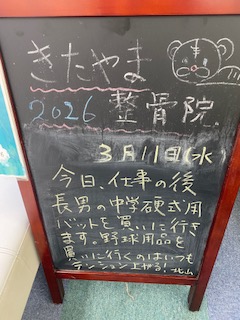 きたやま
2026 整骨院
3月11日(水
今日、仕事の後
長男の中学硬式用
バットを買いに行き
ます。野球用品を
買いに行くのはいつも
テンション上がる! 北山